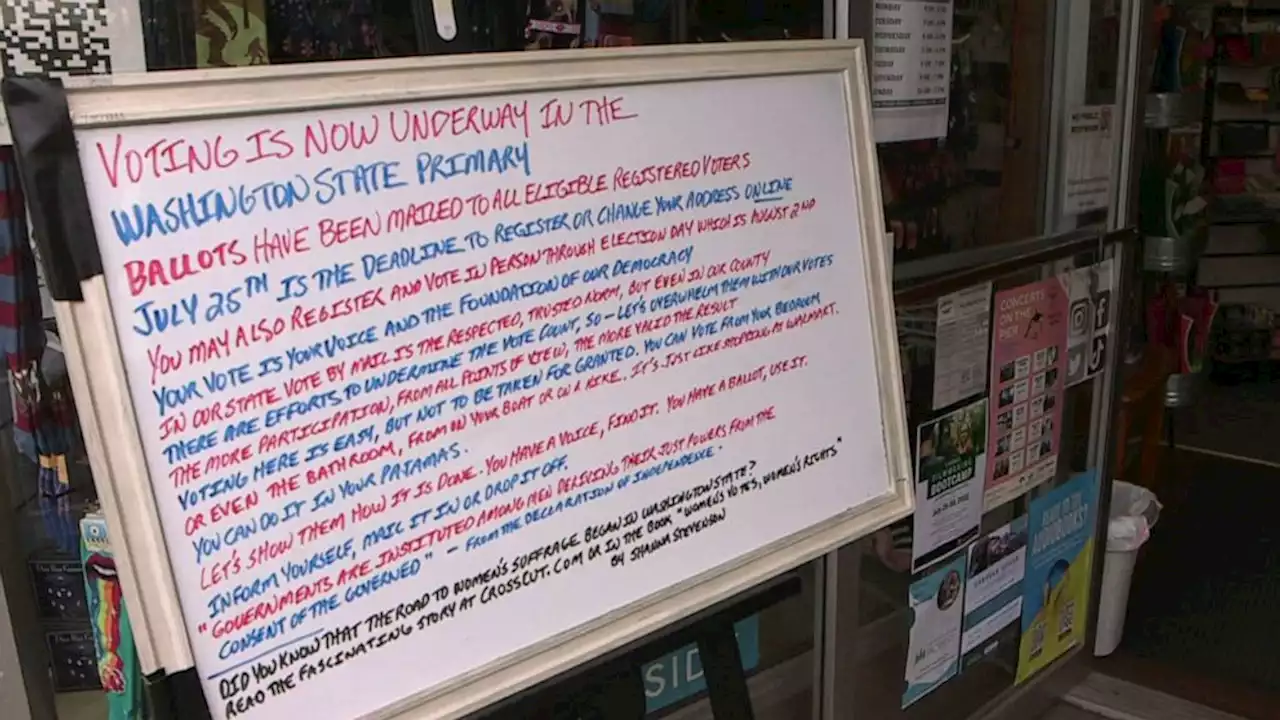 VOTING IS NOW UNDERWAY IN THE
WASHINGTON STATE PRIMARY
BALLOTS HAVE BEEN MAILED TO ALL ELIGIBLE REGISTERED VOTERS
JULY 25TH IS THE DEADLINE TO REGISTER OR CHANGE YOUR ADDRESS ONLINE
YOU MAY ALSO REGISTER AND VOTE IN PERSON THROUGH ELECTION DAY WHICH IS AUGUST 2ND
YOUR VOTE IS YOUR VOICE AND THE FOUNDATION OF OUR DEMOCRACY
IN OUR STATE VOTE BY MAIL IS THE RESPECTED, TRUSTED NORM, BUT EVEN IN OUR COUNTY
THERE ARE EFFORTS TO UNDERMINE THE VOTE COUNT, SO - LET'S OVERWHELM THEM WITH OUR VOTES
THE MORE PARTICIPATION, FROM ALL POINTS OF VIEW, THE MORE VALID THE RESULT
VOTING HERE IS EASY, BUT NOT TO BE TAKEN FOR GRANTED. YOU CAN VOTE FROM YOUR BEDROOM
OR EVEN THE BATHROOM, FROM ON YOUR BOAT OR ON A HIKE. IT'S JUST LIKE SHOPPING AT WALMART.
YOU CAN DO IT IN YOUR PAJAMAS.
LET'S SHOW THEM HOW IT IS DONE. YOU HAVE A VOICE, FIND IT. YOU HAVE A BALLOT, USE IT.
INFORM YOURSELF, MAIL IT IN OR DROP IT OFF.
"GOVERNMENTS ARE INSTITUTED AMONG MEN DERIVING THEIR JUST POWERS FROM THE
CONSENT OF THE GOVERNED" - FROM THE DECLARATION OF INDEPENDENCE.
DID YOU KNOW THAT THE ROAD TO WOMEN'S SUFFRAGE BEGAN IN WASHINGTON STATE?
READ THE FASCINATING STORY AT CROSSCUT.COM OR IN THE BOOK "WOMEN'S VOTES, WOMEN'S RIGHTS"
BY SHANNA STEVENSON
CONCERTS
ON THE
PIER
BOOTCAMP
SID